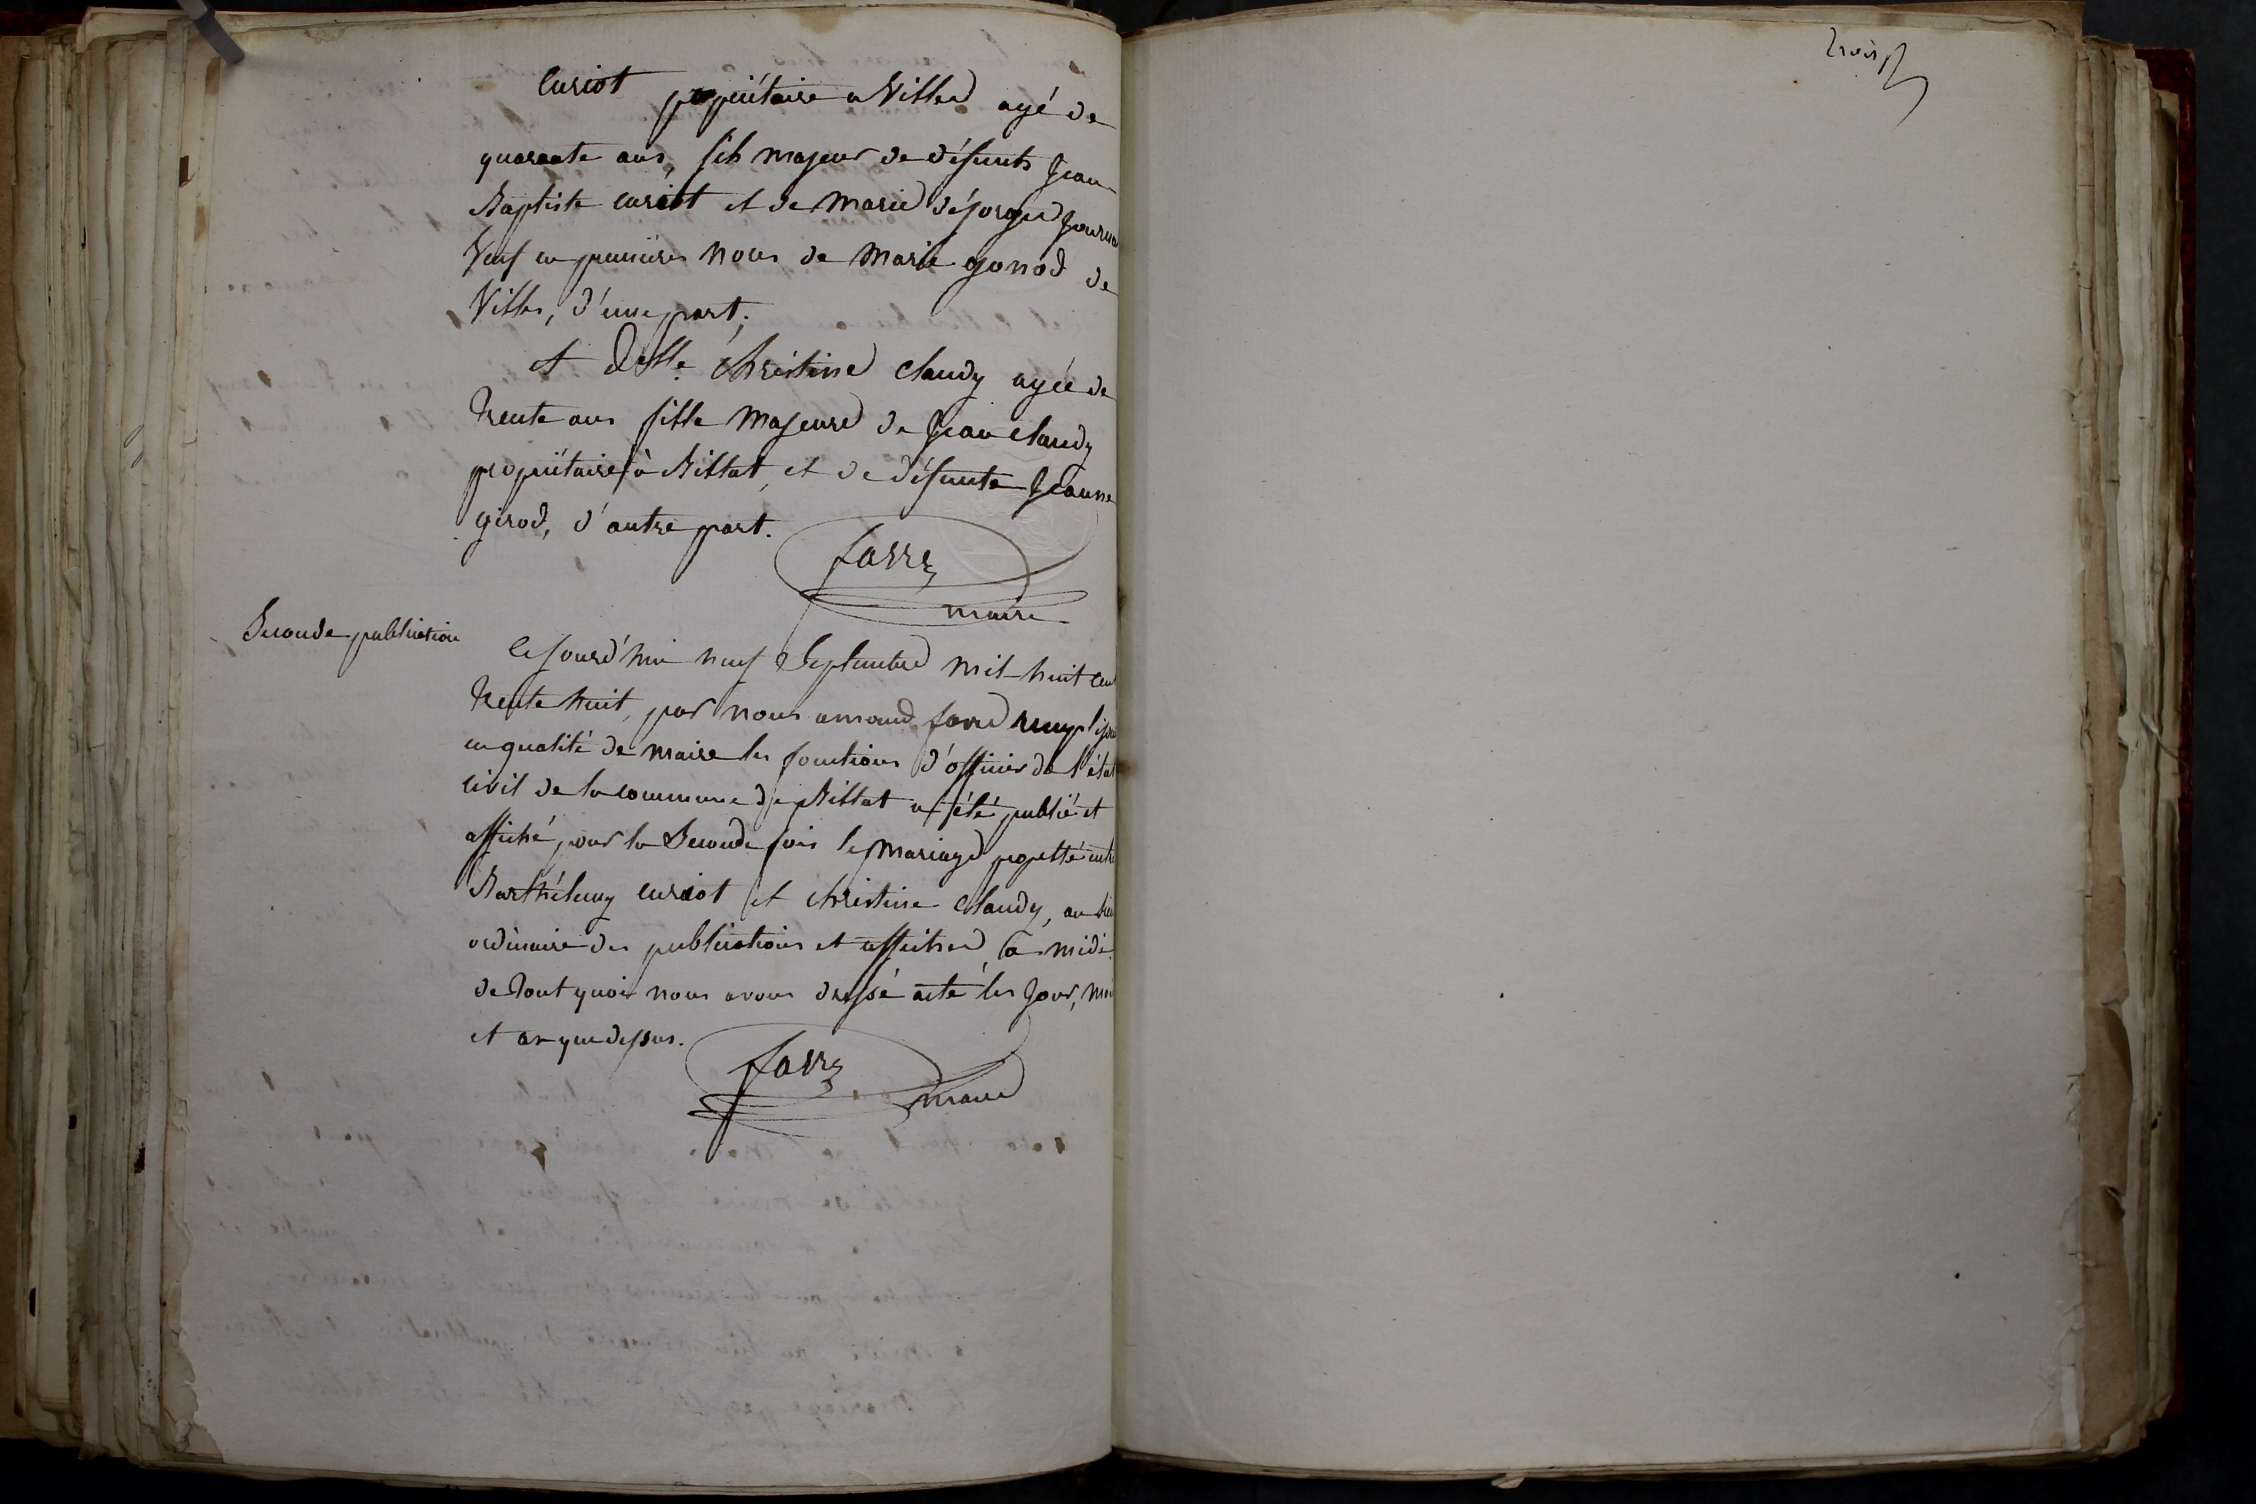 trois
Curiot propriétaire a Villes agé de
quarante ans, fils majeur de défunts Jean
Baptiste curiot et de marie déforge
Veuf en premières noces de marie gonod de
Villes, d'une part;
et Delle. christine claudy agée de
trente ans fille majeure de Jean claudy
propriétaire à Billiat, et de défunte Jeanne
girod, d'autre part.
favre
maire
Seconde publication
Cejourd'hui neuf Septembre mil huit cent
trente huit, par nous amand favre
en qualité de maire les fonctions d'officier de l'état
civil de la commune de Billiat a été publié et
affiché pour la Seconde fois le mariage projetté entre
Barthélemy curiot et christine claudy, au lieu
ordinaire des publications et affiches, à midi.
de tout quoi nous avons dressé acte les jour, mois
et an que dessus.
favre
maire